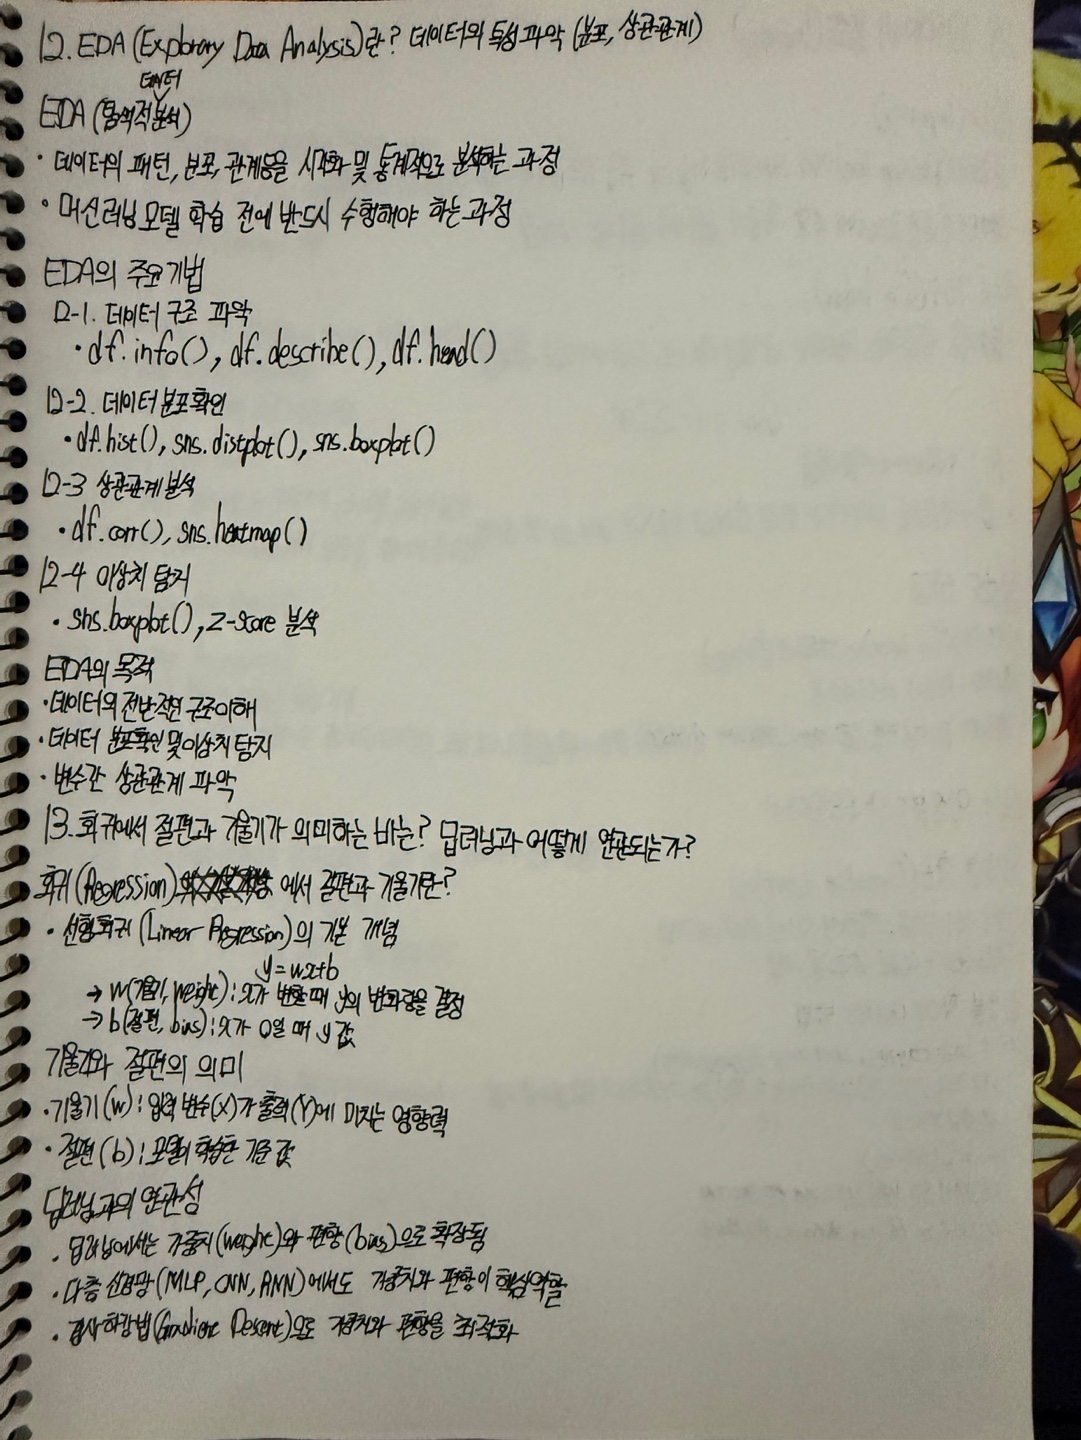 12. EDA (Exploratory Data Analysis)란? 데이터의 특성 파악 (분포, 상관관계)
데이터
EDA (탐색적분석)
· 데이터의 패턴, 분포, 관계등을 시각화 및 통계적으로 분석하는 과정
· 머신러닝 모델 학습 전에 반드시 수행해야 하는 과정
EDA의 주요기법
12-1. 데이터 구조 파악
· df.info(), df.describe(), df.head()
12-2. 데이터 분포확인
· df.hist(), sns.distplot(), sns.boxplot()
12-3 상관관계 분석
· df.corr(), sns.heatmap()
12-4 이상치 탐지
· sns.boxplot(), Z-score 분석
EDA의 목적
· 데이터의 전반적인 구조이해
· 데이터 분포확인 및 이상치 탐지
· 변수간 상관관계 파악
13. 회귀에서 절편과 기울기가 의미하는 바는? 딥러닝과 어떻게 연관되는가?
회귀(Regression) 에서 절편과 기울기란?
· 선형회귀 (Linear Regression)의 기본 개념
y = wx+b
→ w(기울기, weight) : x가 변할 때 y의 변화량을 결정
→ b(절편, bias) : x가 0일 때 y 값
기울기와 절편의 의미
· 기울기(w) : 입력 변수(X)가 출력(Y)에 미치는 영향력
· 절편(b) : 모델이 학습한 기준 값
딥러닝과의 연관성
· 딥러닝에서는 가중치(weight)와 편향(bias)으로 확장됨
· 다층 신경망(MLP, CNN, RNN)에서도 가중치와 편향이 핵심역할
· 경사하강법(Gradient Descent)으로 가중치와 편향을 최적화